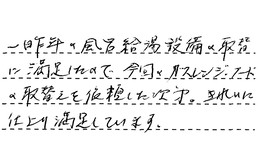 一昨年の風呂給湯設備の取替
に満足したので、今回のガスレンジ、フード
の取替えを依頼した次第。きれいに
仕上り満足しています。